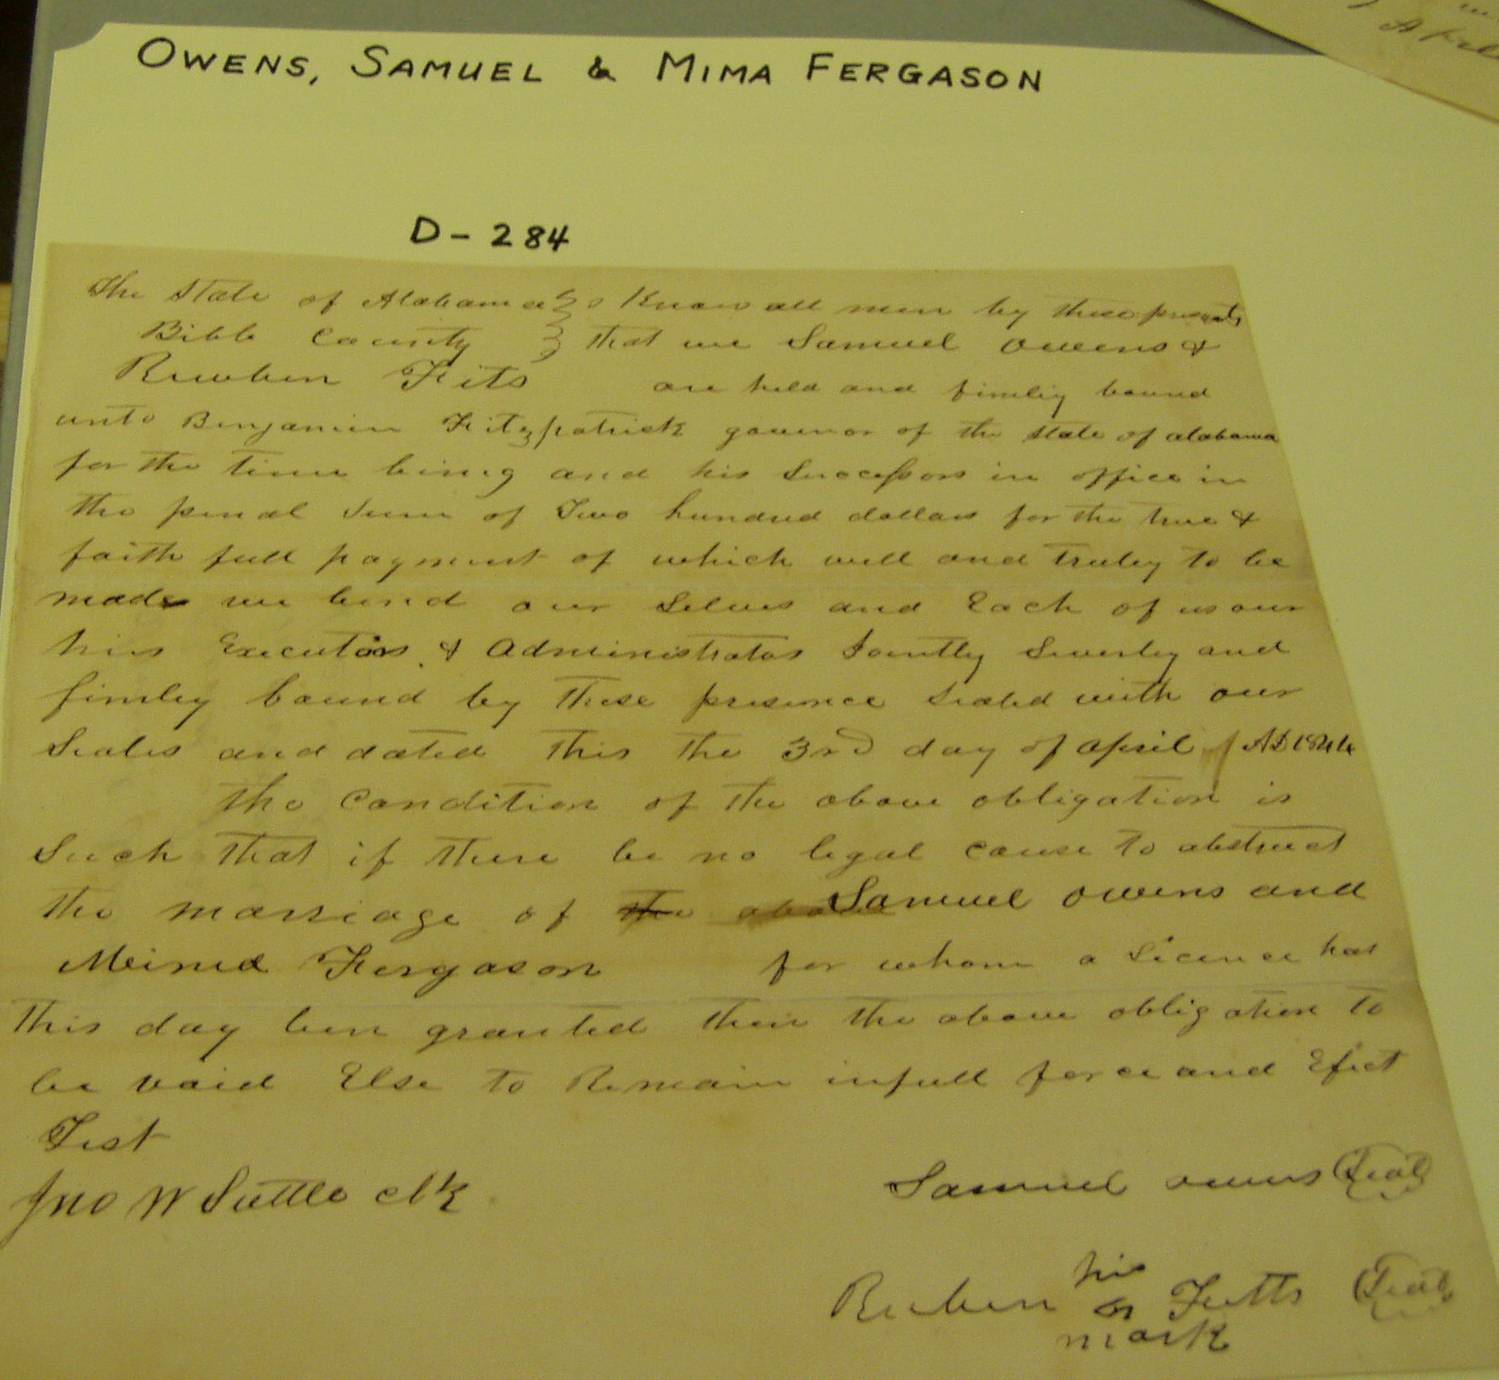 OWENS, SAMUEL & MIMA FERGASON
D-284
The State of Alabama Know all men by these presents
Bibb County that we Samuel Owens &
Reuben Fits are held and firmly bound
unto Benjamin Fitzpatrick govenor of the state of alabama
for the time being and his Successors in office in
the penal sum of Two hundred dollars for the true &
faith full payment of which well and truley to be
made we bind our Selves and Each of us our
hirs Executors & Administrators Jointly Severley and
firmley bound by these presence sealed with our
Seales and dated this the 3rd day of april AD 1844
the Condition of the above obligation is
Such that if there be no legal cause to abstruct
the marriage of Samuel Owens and
Fergason for whom a Licence has
this day ben granted then the above obligation to
be void Else to Remain in full force and Efect
Test
Jno W Suttle clk
Samuel owens Seal
his
Reuben Fitts Seal
mark